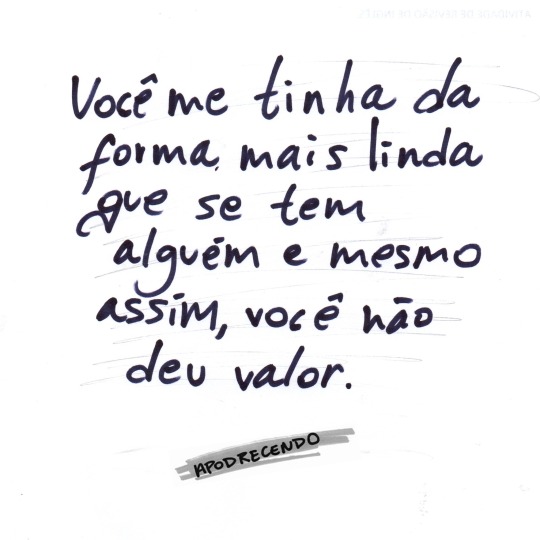 Você me tinha da
forma mais linda
que se tem
alguém e mesmo
assim, você não
deu valor.
APODRECENDO